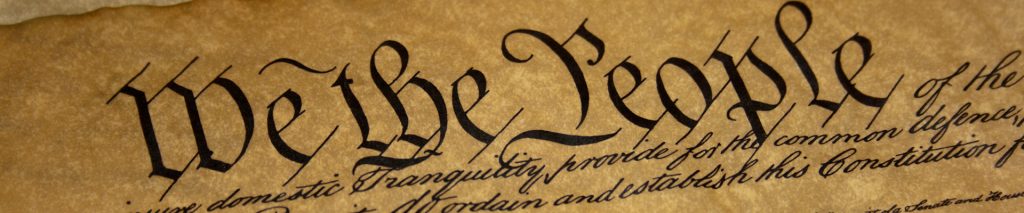 We the People of the
domestic Tranquility, provide for the common defence,
ordain and establish this Constitution
Senate and House